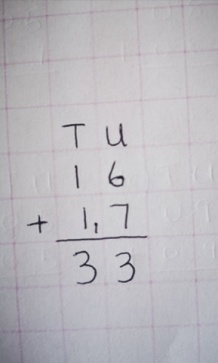 T U
1 6
+ 1, 7
3 3